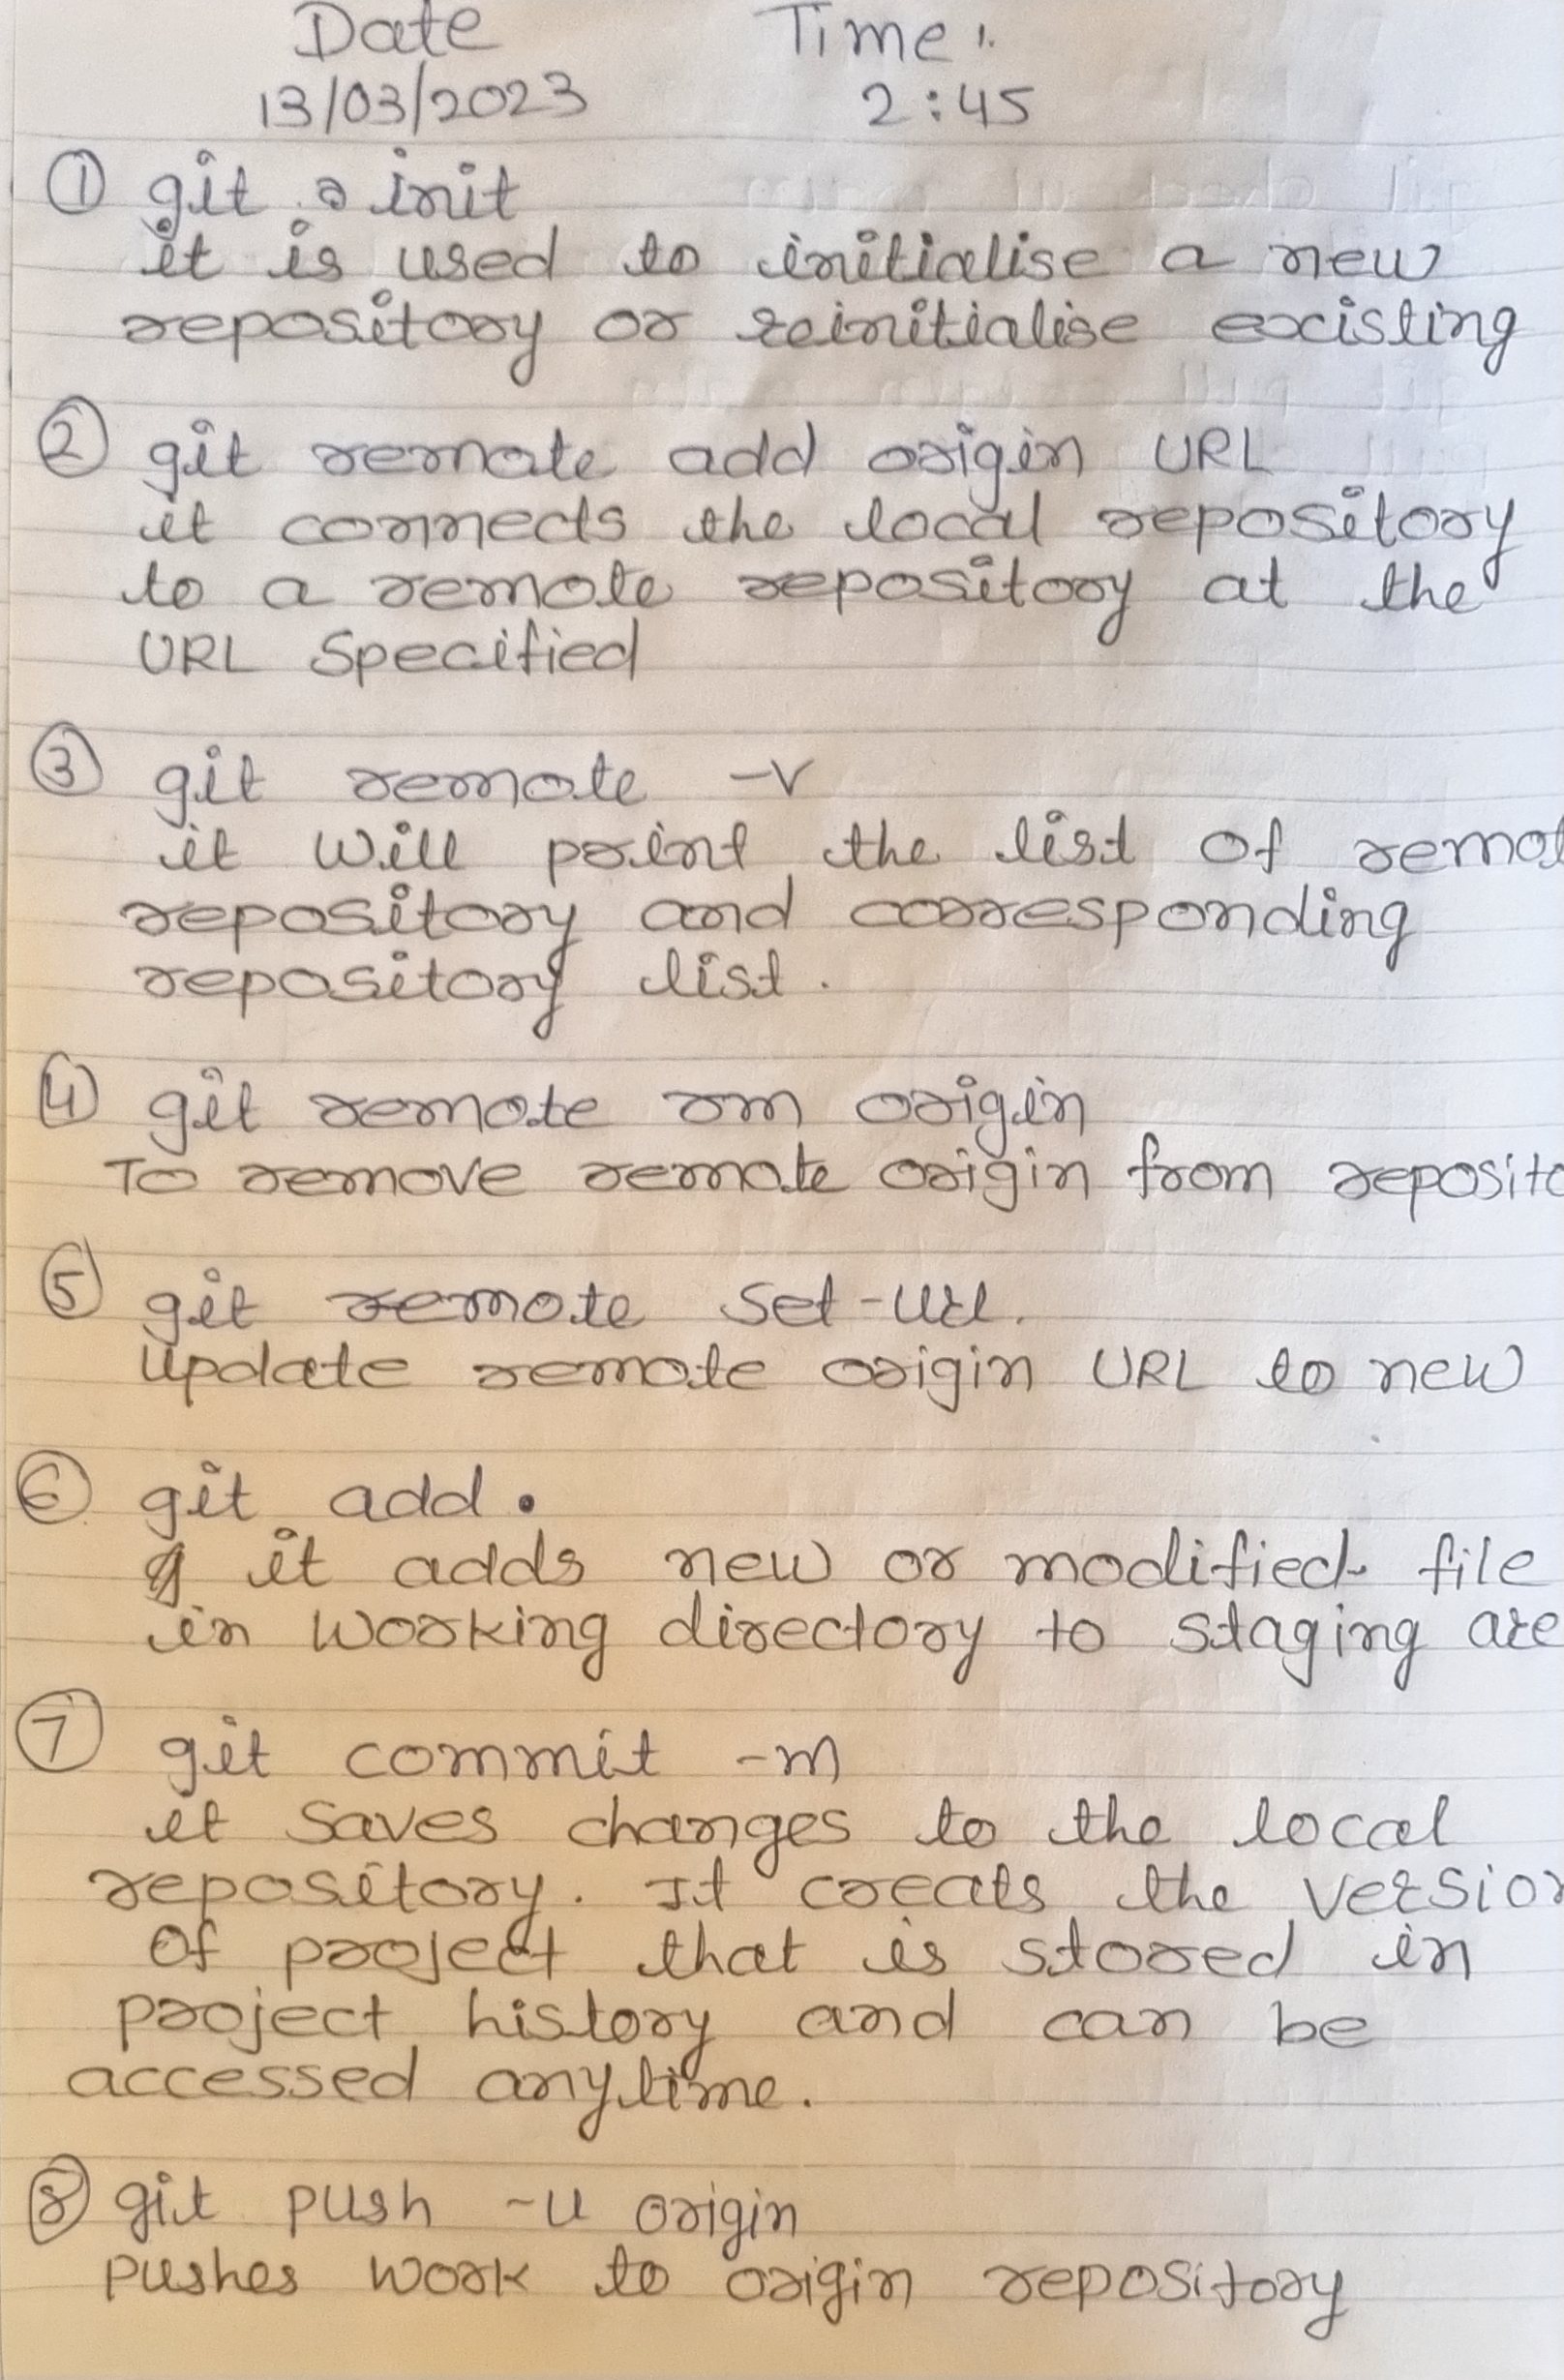 Date Time:
13/03/2023 2:45
① git init
it is used to initialise a new
repository or reinitialise existing
② git remote add origin URL
it connects the local repository
to a remote repository at the
URL Specified
③ git remote -v
it will print the list of remot
repository and corresponding
repository list.
④ git remote rm origin
To remove remote origin from reposito
⑤ git remote set-url.
update remote origin URL to new
⑥ git add .
it adds new or modified file
in working directory to staging are
⑦ git commit -m
it saves changes to the local
repository. It creats the version
Of project that is stored in
project history and can be
accessed anytime.
⑧ git push -u origin
pushes work to origin repository